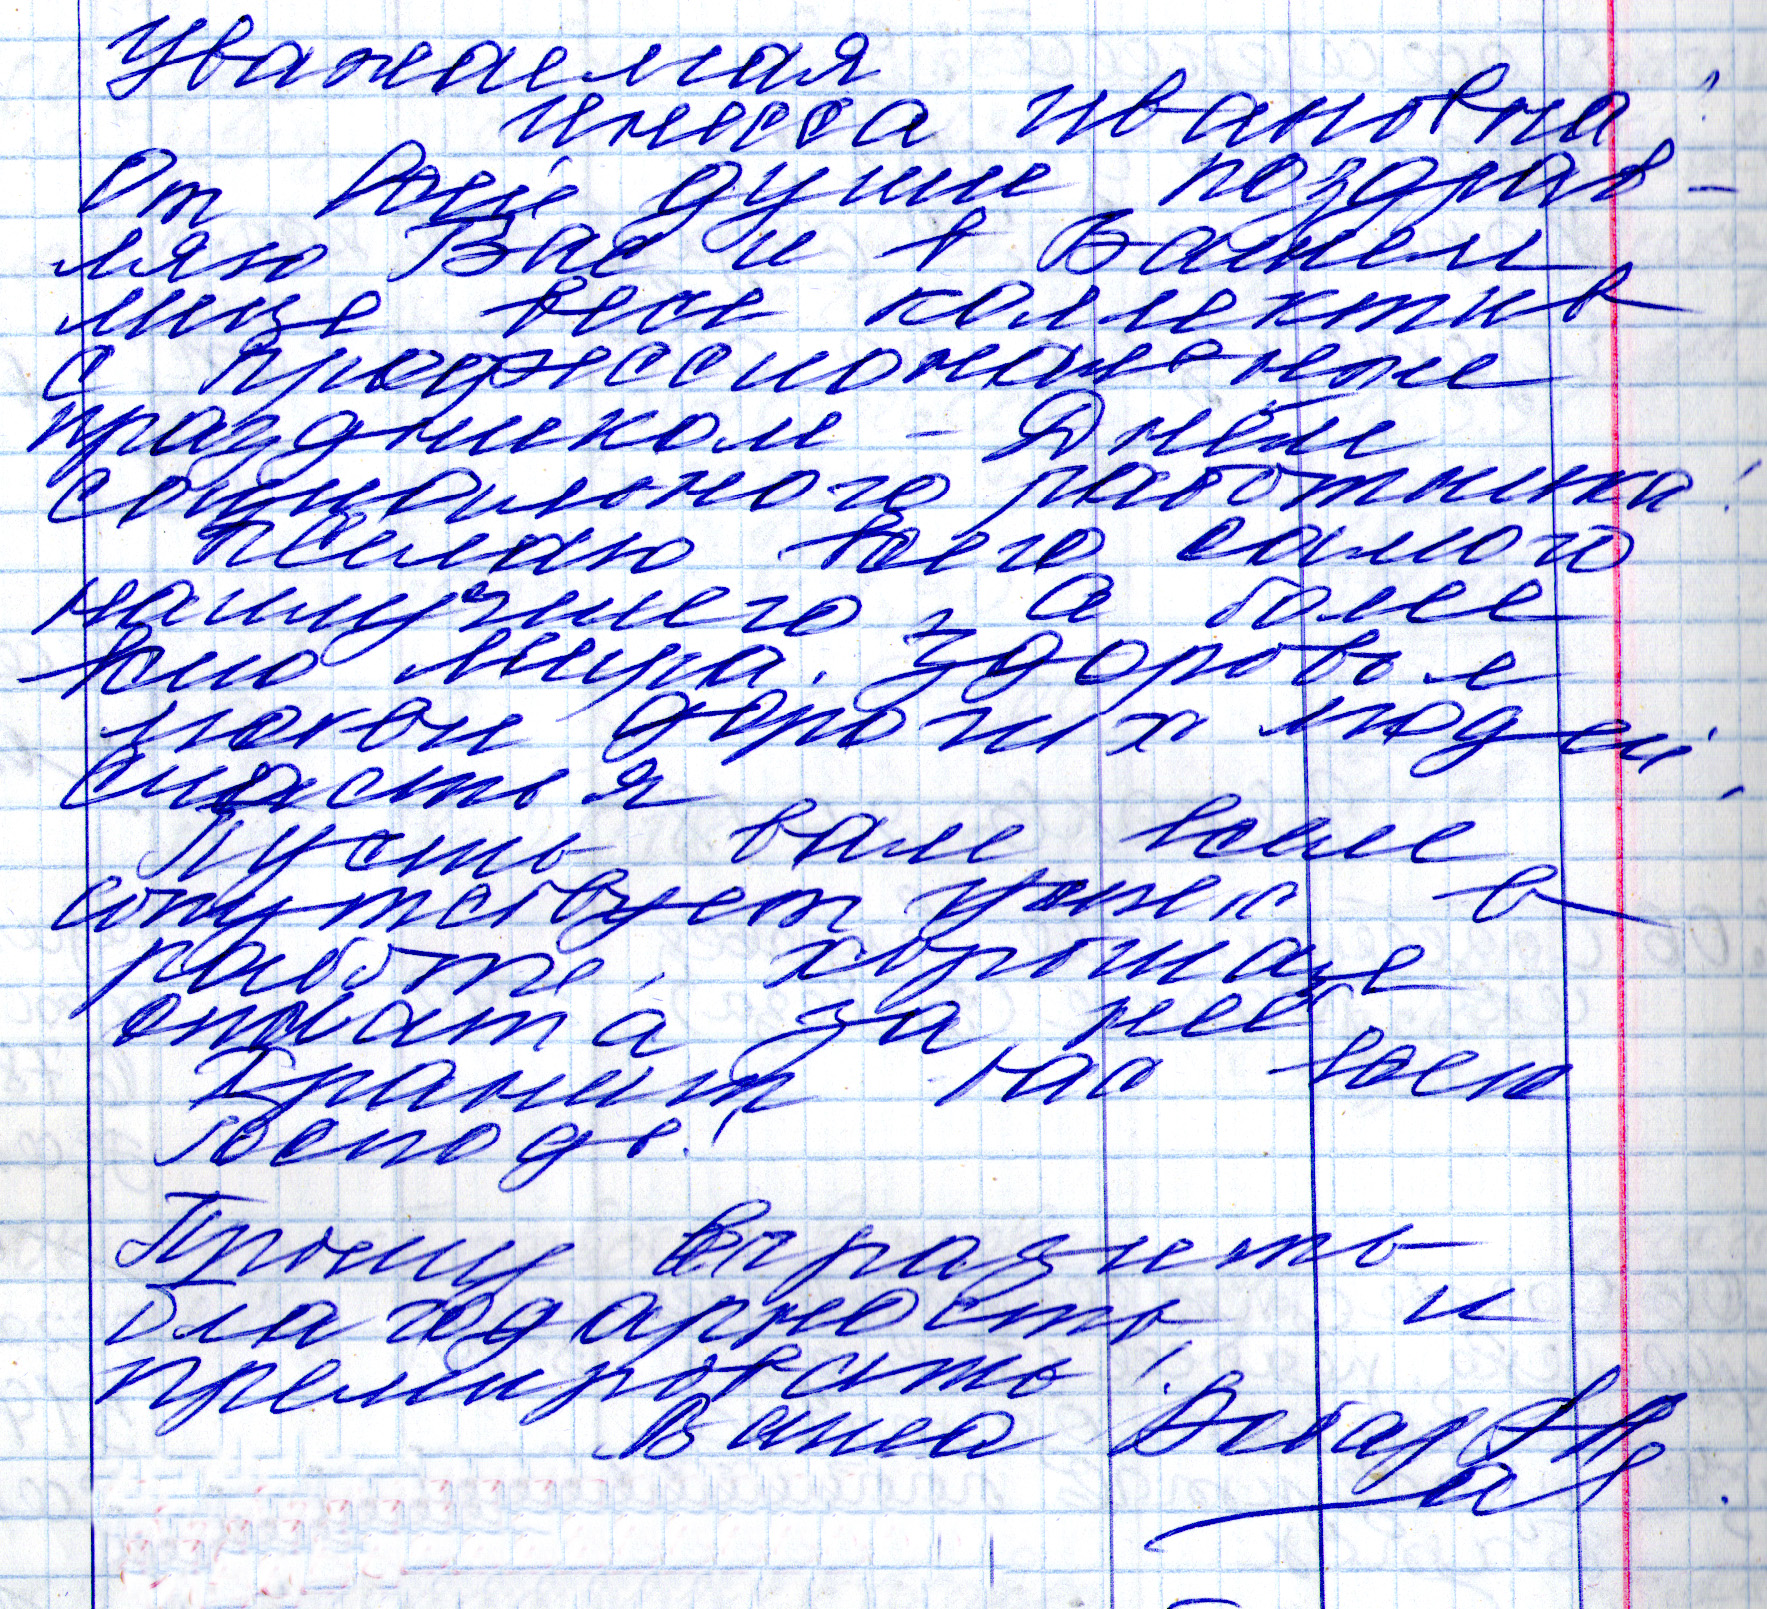 Уважаемая
Инесса Ивановна!
От всей души поздрав-
ляю Вас и в Вашем
лице весь коллектив
с профессиональным
праздником - Днём
социального работника!
Желаю всего самого
наилучшего, а более
всего мира, здоровья
любви дорогих людей,
счастья
Пусть вам всем
сопутствует успех в
работе, хорошая
оплата за неё
Хранит вас всех
Господь!
Прошу выразить
благодарность и
премировать!
Ваша